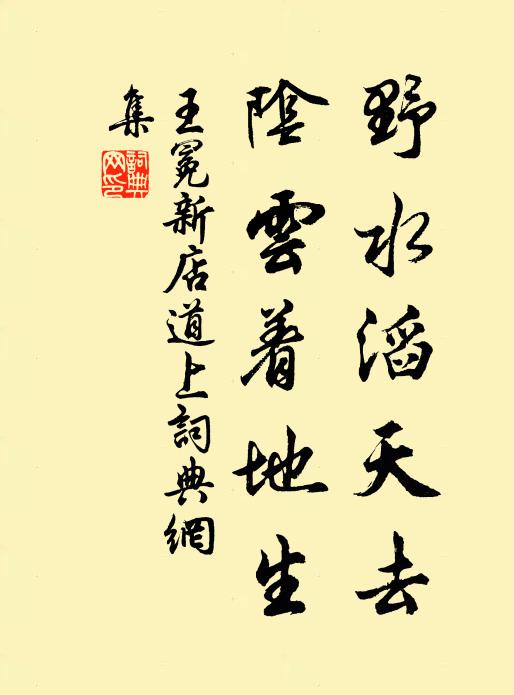 野水滔天去
陰雲着地生
王冕新店道上詞典網
集
詞典
网印